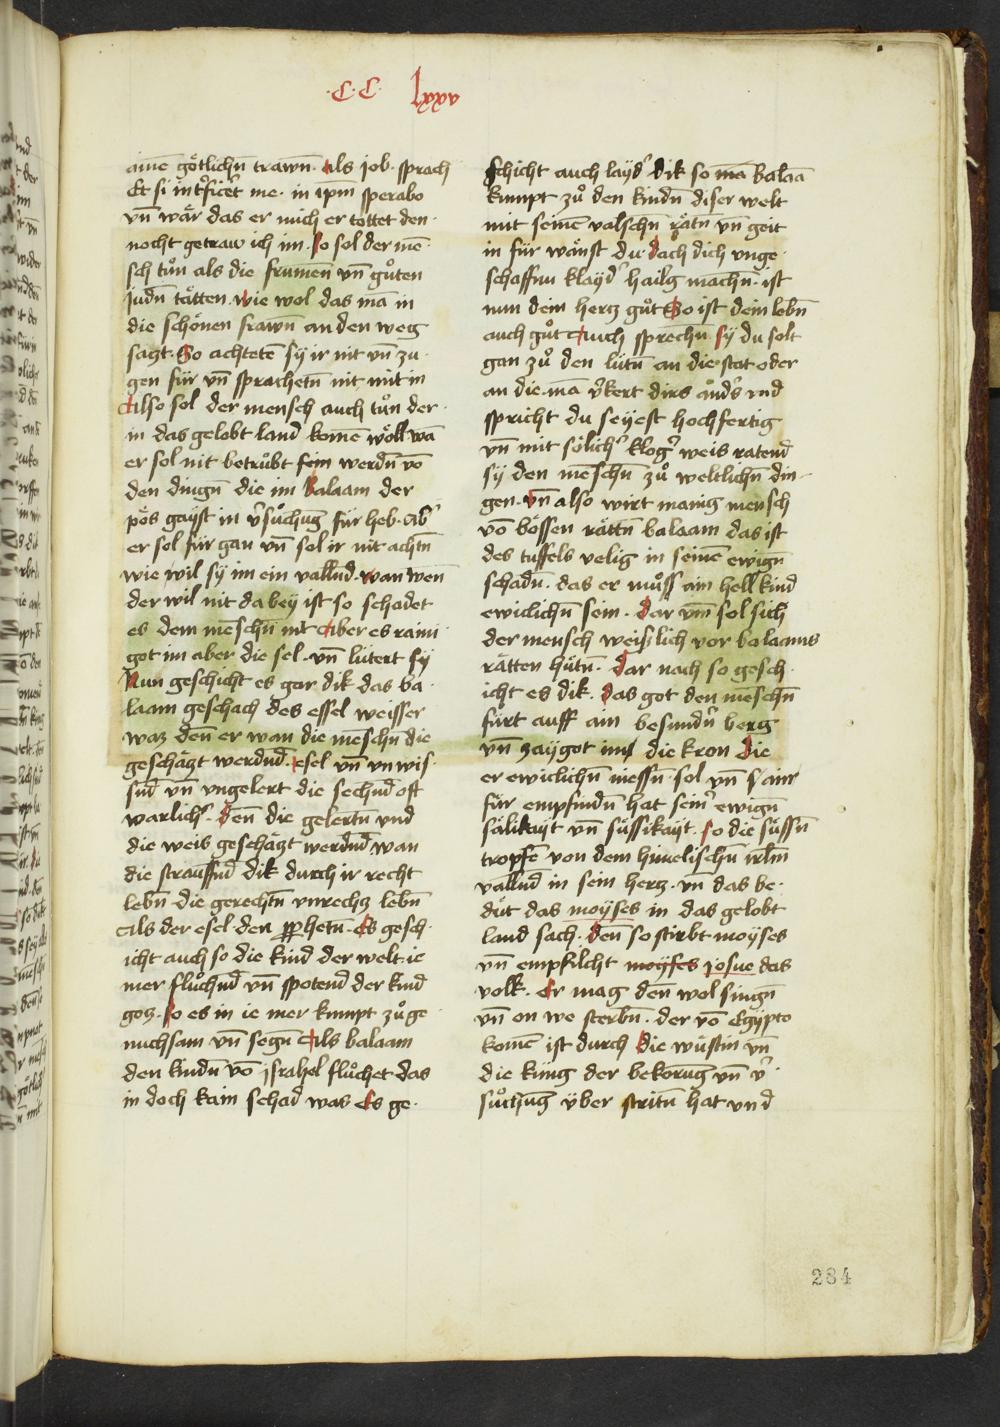 ·C·C· lxxv
aime götlichn̄ trawn̄. Als job. sprach
Et si int̓ficet me. in ip̄m sperabo
vn̄ wär das er mich er töttet den·
nocht getraw ich im. So sol der mē·
sch tůn als die frumen̄ vn̄ gůten
judn̄ tätten. wie wol das mā in
die schönen frawn̄ an den weg
sazt. So achtetē sÿ ir nit vn̄ zu·
gen für vn̄ sprachetn̄ nit mit in
Also sol der mensch auch tůn der·
in das gelobt land komē wöll wā
er sol nit betrůbt sein werdn̄ vō
den dingn̄ die im Balaam der
pös gayst in v̓sůchung für heb. ab̓
er sol für gan vn̄ sol ir nit achtn̄
wie wil sÿ im ein vallnd. wan wen
der wil nit da bey ist so schadet
es dem mēschn̄ nit Aber es raini·
get im aber die sel. vn̄ lütert sÿ
Nun geschicht es gar dik das ba·
laam geschach des essel weisser
waz den̄ er wan die mēschn̄ die
geschäzt werdnd. esel vn̄ vnwis·
snd vn̄ vngelert die sechnd oft
warlich̓. den̄ die gelertn̄ vnd
die weis geschäzt werdnd wan
die strauffnd dik durch ir recht
lebn̄ die gerechtn̄ vnrechz lebn̄
Als der esel den prophetn̄. Es gesch·
icht auch so die kind der welt. ie
mer flůchnd vn̄ spotend der kind
goz. so es in ie mer kumpt zů ge·
nuchsam vn̄ segn̄ Als balaam
den kindn̄ vō jsrahel flůchet das
in doch kain schad was Es ge·
schicht auch layd̓ dik so mā balaā
kumpt zů den kindn̄ diser welt
mit seinē valschn̄ rätn̄ vn̄ geit
in für wänst du. dach dich vnge·
schaffnu klayd̓ hailg machn̄. ist
nun dein herz gůt So ist dein lebn̄
auch gůt Auch sprechn̄ sÿ du solt
gan zů den lütn̄ an die stat oder
an die. mā v̓kert dirs ånd̓s vnd
spricht du seyest hochfertig
vn̄ mit sölich̓ klog̓ weis ratend
sÿ den mēschn̄ zů weltlichn̄ din·
gen. vn̄ also wirt manig mensch
vō bössen rättn̄ balaam das ist
des tuffels velig in seinē ewign̄
schadn̄. das er můss ain hell kind
ewiclichn̄ sein. Dar vm̄ sol sich
der mensch weislich vor balaams
rätten hütn̄. Dar nach so gesch·
icht es dik. das got den mēschn̄
fürt auff ain besundn̓ berg
vn̄ zaygot im die kron Die
er ewiclichn̄ niessn̄ sol vn̄ ainr
für empfindn̄ hat sein̓ ewign̄
sälikayt vn̄ süssikayt. so die süssn̄
tropfē von dem himelischn̄ irlm̄
vallnd in sein herz. vn̄ das be·
düt das moÿses in das gelobt
land sach. den̄ so stirbt moÿses
vn̄ empfilcht moÿses josue das
volk. Er mag den̄ wol singn̄
vn̄ on we sterbn̄. der vō Egÿpto
komē ist durch Die wüstin vn̄
die küng der bekorung vn̄ v̓·
sůchung v̈ber stritn̄ hat vnd
284